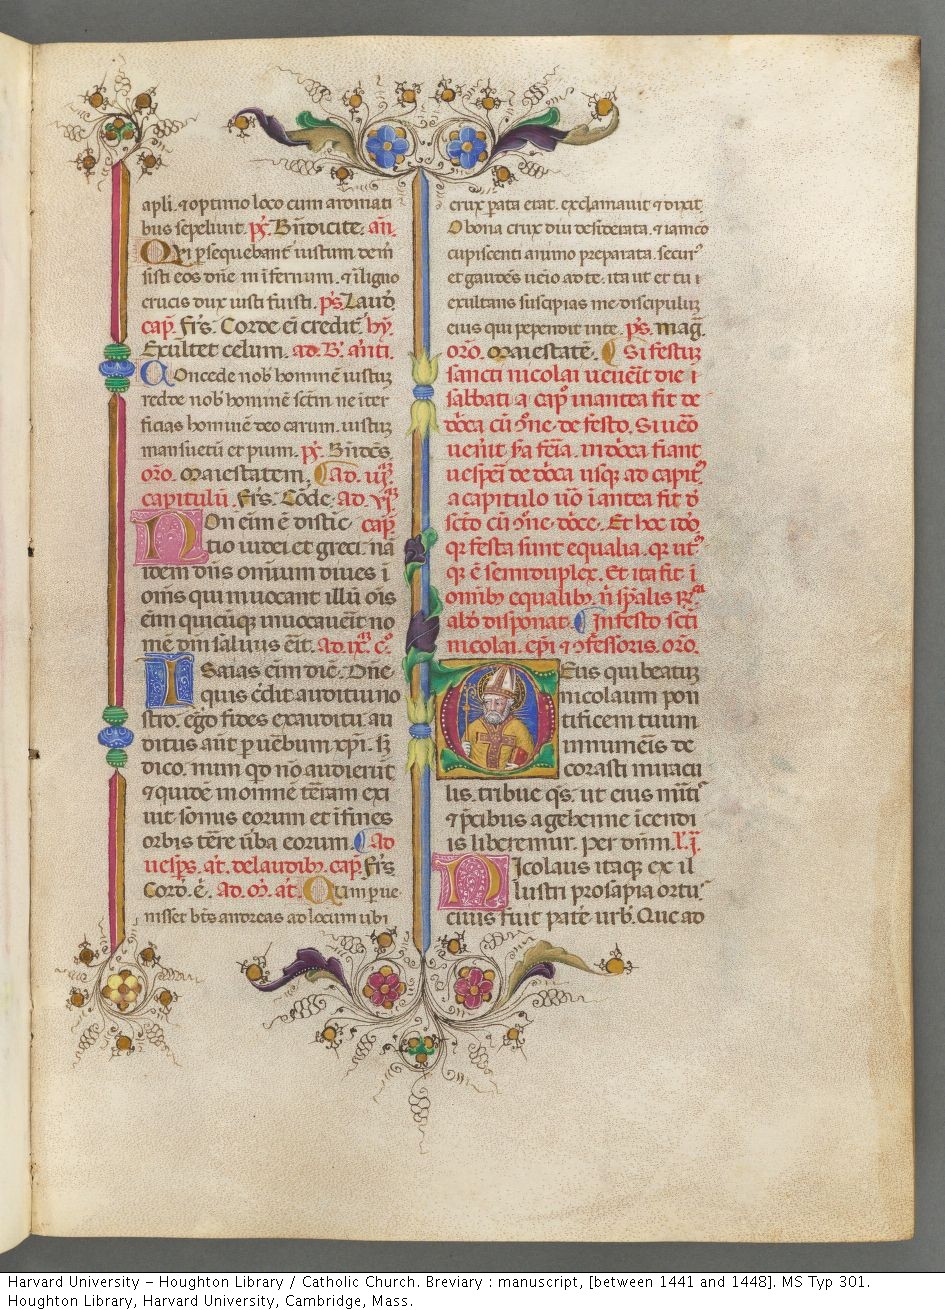 apli. ⁊ optimo loco cum aromati
bus sepeliuit. ps̄. Bn̄dicite. an̄.
Qui ꝑsequebant᷑ iustum dem̄
sisti eos dn̄e in ifernum. ⁊ ı̄ ligno
crucis dux iusti fuisti. ps̄. Laud̄.
cap̄. Fr̄s. Corde eī credit᷑. hȳ.
Exultet celum. ad. B̄. an̄ti.
Concede nob̄ hominē iustuꝫ
redde nob̄ hominē sc̄tm ne iter
ficias hominē deo carum. iustuꝫ
mansuetū et pium. ps̄. Bn̄dc̄s.
orō. Maiestatem. Ad. iijᵃ
capitulū. Fr̄s. Cōde. Ad. vjᵃ
Non eim ē distic cap̄
tio iudei et greci. nā
idem dn̄s omnium diues ī
om̄s qui inuocant illū. om̄s
eīm quicūqꝫ inuocauerit no
mē dn̄i saluus er̄it. Ad. ixᵃ. c̄.
Isaias eīm dic̄. Dn̄e
quis c̄dit auditui no
stro. eḡo fides ex auditu. au
ditus aūt ꝑ uērbum xp̄i. Sꝫ
dico. num qd nō audierūt
⁊ quidē in omnē tēram exi
uit sonus eorum et ı̄ fines
orbis tērre ūba eorum. Ad
uesp̄s. a̅t. de laudibꝫ. cap̄. Fr̄s
Cord. ē. Ad. m̄. a̅t. Cum ꝑue
nisset bt̄s andreas ad locum ubi
crux ꝑata erat. exclamauit ⁊ dixit
O bona crux diu desiderata. ⁊ iam cō
cupiscenti animo preparata. securꝰ
et gaudēs uēio ad te. ita ut et tu
exultans suscipias me discipuluꝫ
eius qui pependit in te. ps̄. maḡ.
orō. Maiestatē. Si festuꝫ
sancti nicolai uenerit die
sabbati a capᵒ in antea fit de
eo cū ꝯmē. de festo. Si uēo
uenit sᵃ fēia. in dōca fiant
uesperi de dōca usqꝫ ad capitᵒ
a capitulo uō ı̄ antea fit d̄
sc̄to cū ꝯmē. dōce. Et hoc idō
qꝛ festa sunt equalia. qꝛ utꝰ
qꝫ ē semiduplex. Et ita fit ı̄
om̄ibꝫ equalibꝫ. n̄ sp̄alis
alᵈ disponat. In festo sc̄ti
nicolai. ep̄i ⁊ ꝯfessoris. orō.
Deus qui beatuꝫ
nicolaum pon
tificem tuum
innumēis de
corasti miracu
lis. tribue qs̄. ut eius mēitꝭ
⁊ p̄cibus a gehenne ı̄cendi
is liberemur. per dn̄m. l̄. j.
Nicolaus itaqꝫ ex il
lustri prosapia ortuꝰ
ciuis fuit patēe urbꝭ. Que ad
Harvard University – Houghton Library / Catholic Church. Breviary : manuscript, [between 1441 and 1448]. MS Typ 301.
Houghton Library, Harvard University, Cambridge, Mass.